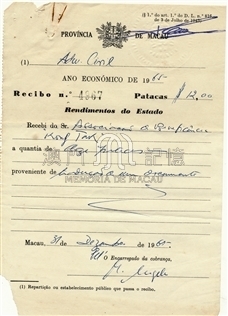 § 1.º do art. 1.º do D. L. n.º
PROVÍNCIA DE MACAU
(1) Adm. Civil
ANO ECONÓMICO DE 1965
Recibo n.º 4967 Patacas $ 12,00
Rendimentos do Estado
Recebi do Sr. Associação de Beneficência
a quantia de doze patacas
澳門記憶
MEMÓRIA DE MACAU
proveniente de
Macau, 31 de Dezembro de 1965.
O Encarregado da cobrança,
(1) Repartição ou estabelecimento público que passa o recibo.